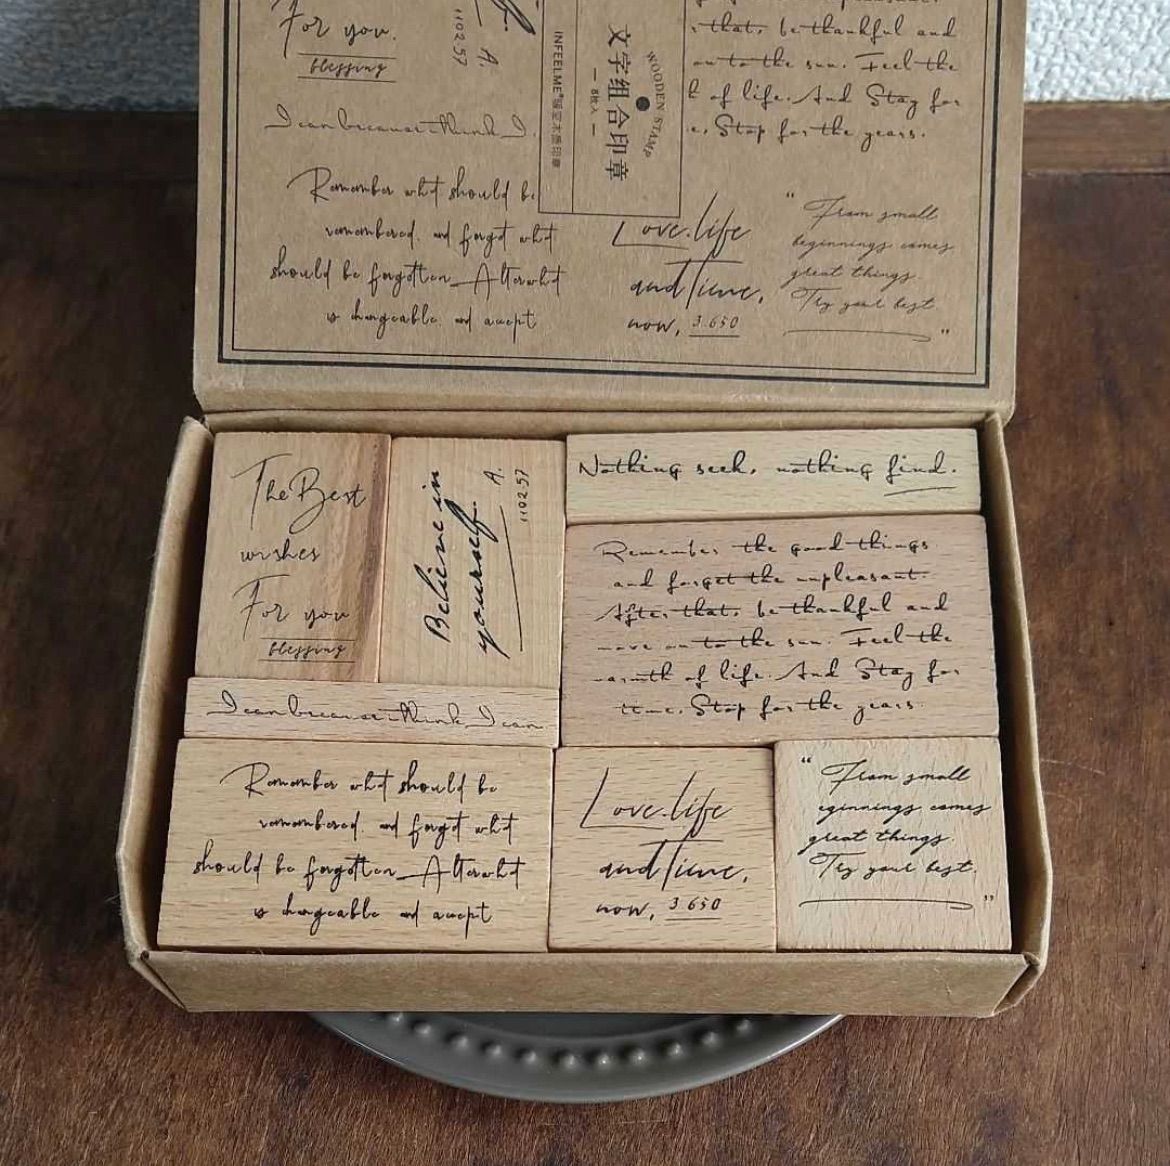 For you.
blessing
A.
110257
INFEELME
文字组合印章
8枚入
WOODEN STAMP
that, be thankful and
on to the sun. Feel the
of life. And Stay for
e, Stop for the years.
I can because i think I
Remember what should be
remembered, and forget what
should be forgotten. Alter what
is changeable and accept
Love.life
and Time,
now, 3.650
“From small
beginnings comes
great things.
Try your best.
”
The Best
wishes
For you
blessing
Believe in
yourself
A.
110257
Nothing seek, nothing find.
Remember the good things
and forget the unpleasant.
After that, be thankful and
move on to the sun. Feel the
warmth of life. And Stay for
time, Stop for the years.
I can because i think I can.
Remember what should be
remembered, and forget what
should be forgotten. Alter what
is changeable and accept
Love.life
and Time,
now, 3.650
“From small
eginnings comes
great things.
Try your best.
”